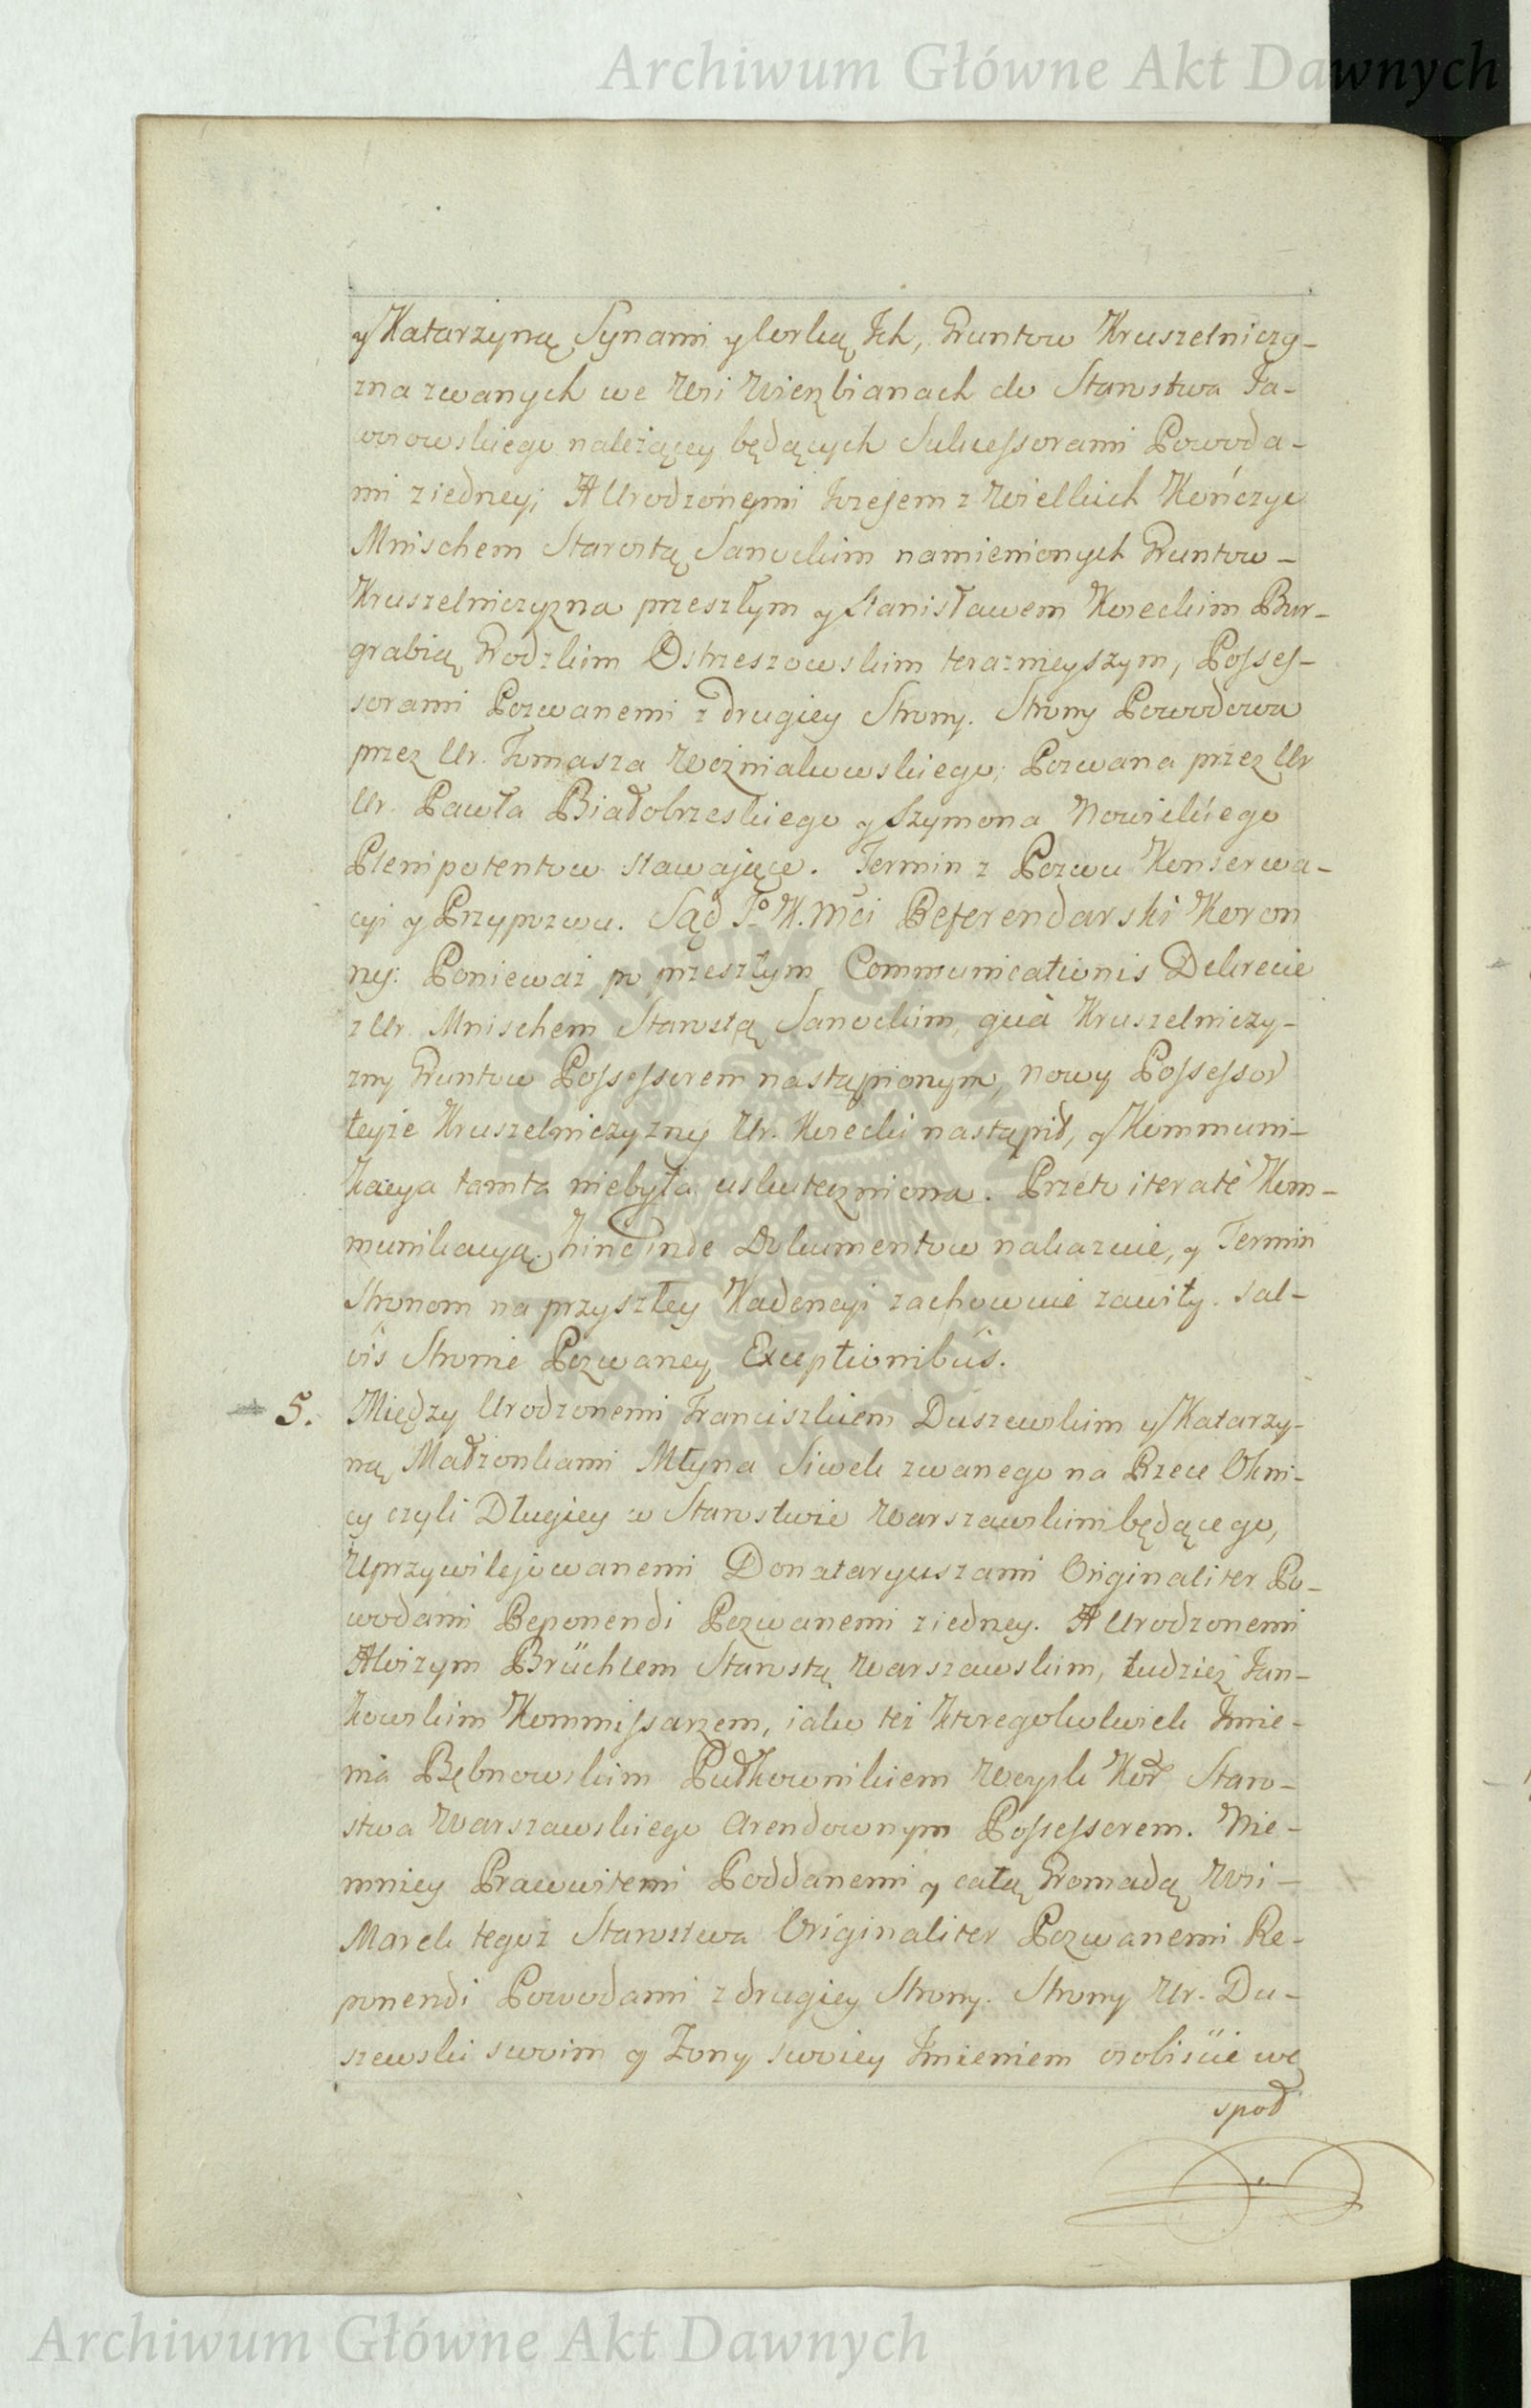 Archiwum Główne Akt Dawnych
y Katarzyną Synami y Corką Ich, Gruntow Kruszelniczy-
zna zwanych we Wsi Wierzbianach do Starostwa Ja-
worowskiego należącey będących Sukcessorami Powoda-
mi z iedney; A Urodzonymi Jozefem z Wielkich Kończyc
Mnischem Starostą Sanockim namienionych Gruntow -
Kruszelniczyzna przeszłym y Stanisławem Koreckim Bur-
grabią Grodzkim Ostrzeszowskim teraznieyszym, Posses-
sorami Pozwanemi z drugiey Strony. Strony Powodowa
przez Ur. Tomasza Woźniakowskiego; Pozwana przez Ur
Ur. Pawła Białobrzeskiego y Szymona Nowickiego
Plenipotentow stawaiące. Termin z Pozwu Konserwa-
cyi y Przypozwu. Sąd Jo K. Mci Referendarski Koron
ny: Ponieważ po przeszłym Communicationis Dekrecie
z Ur. Mnischem Starostą Sanockim, quà Kruszelniczy-
zny Gruntow Possessorem nastąpionym, nowy Possessor
teyże Kruszelniczyzny Ur. Korecki nastąpił, y Kommuni-
kacya tamta niebyła uskuteczniona. Przeto iteratè Kom-
munikacyą hinc inde Dokumentow nakazuie, y Termin
Stronom na przyszłey Kadencyi zachowuie zawity. Sal-
vis Stronie Pozwaney Exceptionibus.
5. Między Urodzonemi Franciszkiem Duszewskim y Katarzy-
ną Małżonkami Młyna Siwek zwanego na Rzece Okni-
cy czyli Długiey w Starostwie Warszawskim będącego,
Uprzywilejowanemi Donataryuszami Originaliter Po-
wodami Reponendi Pozwanemi z iedney. A Urodzonemi
Aloizym Brüchlem Starostą Warszawskim, tudzież Jan-
kowskim Kommissarzem, iako też któregokolwiek Imie-
nia Bębnowskim Pułkownikiem Woysk Kor Staro-
stwa Warszawskiego Arendownym Possessorem. Nie-
mniey Pracowitemi Poddanemi y całą Gromadą Wsi -
Marek tegoż Starostwa Originaliter Pozwanemi Re-
ponendi Powodami z drugiey Strony. Strony Ur. Du-
szewski swoim y Żony swoiey Imieniem osobiście we
społ
Archiwum Główne Akt Dawnych